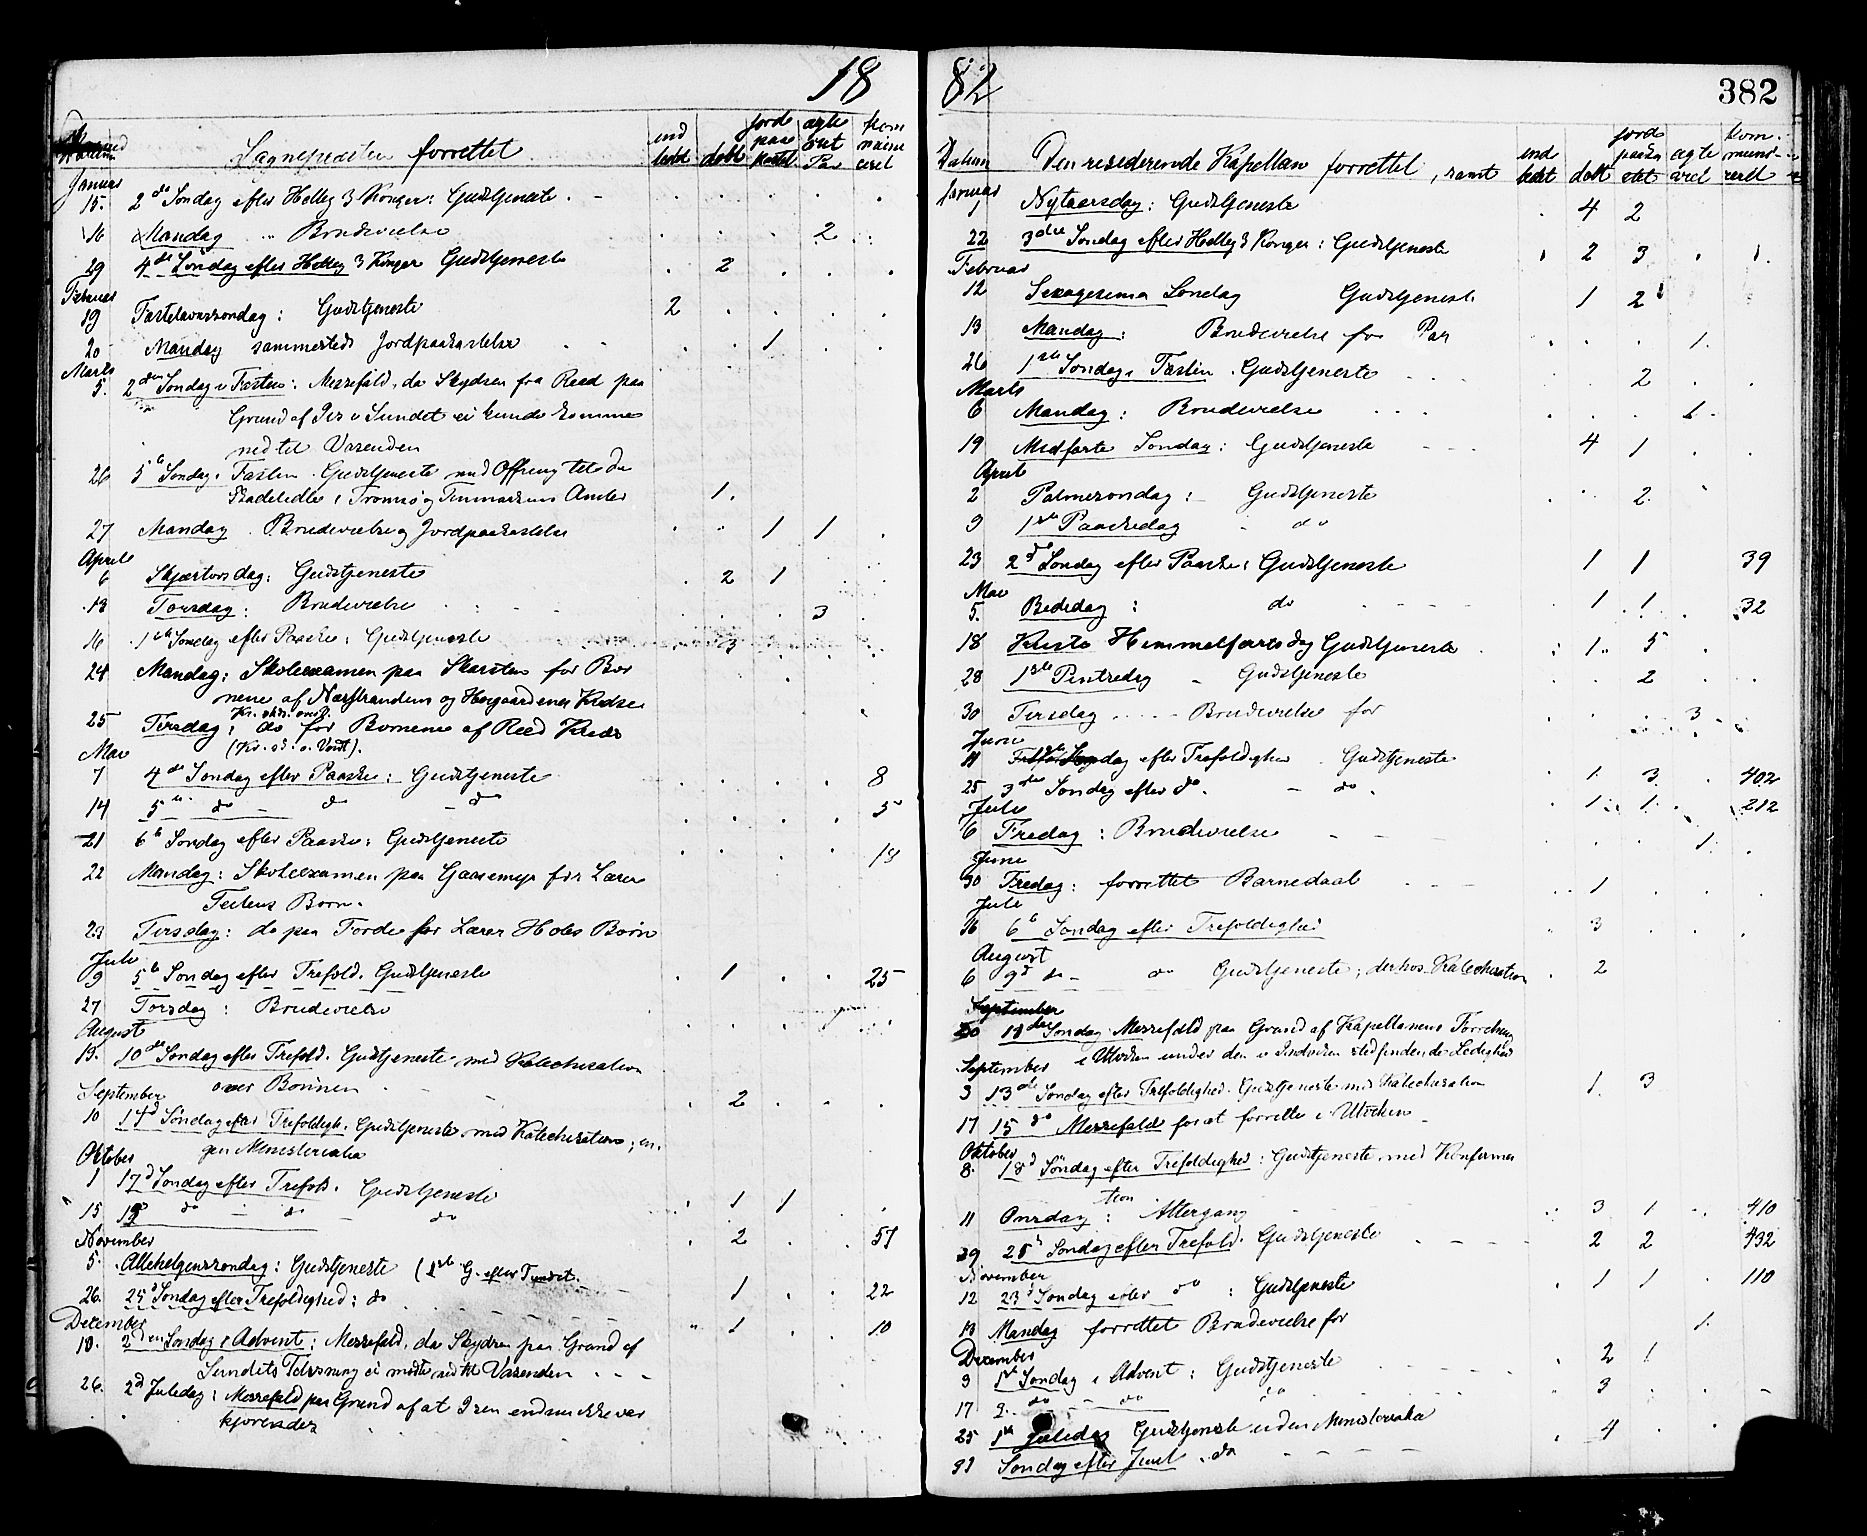 18
Sognepresten forrettet
ind
ledt
døbt
jord
paa
kastet
ægte
viet
Par
kom
mune
ceret
Januar
15. 2den Søndag efter Hellig 3 Konger: Gudstjeneste
16 Mandag Brudevielse 2
29 4de Søndag efter Hellig 3 Konger Gudstjeneste 2
Februar
19 Fastelavnssøndag: Gudstjeneste 2
20 Mandag sammesteds Jordpaakastelse 1
Marts
5. 2den Søndag i Fasten: Messefald, da Skydsen fra Reed paa
Grund af Iis i Sundet ei kunde komme
ned til Vasenden
26 5te Søndag i Fasten. Gudstjeneste med Offring til de
Skadelidte i Tromsø og Finmarkens Amter 1.
27 Mandag. Brudevielse og Jordpaakastelse 1 1
April
6 Skjærtorsdag: Gudstjeneste 2 1
13 Torsdag: Brudevielse 3
16 1ste Søndag efter Paaske: Gudstjeneste 3
24 Mandag: Skoleexamen paa Skarsten for Bør
nene af Nærstrandens og Høgaardenes Kredse
25 Tirsdag: do for Børnene af Reed Kreds
Mai
7 4de Søndag efter Paaske: Gudstjeneste 8
14 5te do do do 5
21 6te Søndag efter Paaske: Gudstjeneste 18
22 Mandag: Skoleexamen paa Gaasemyr for Lærer
Teitens Børn.
23 Tirsdag: do paa Førde for Lærer Holes Børn
Juli
9 5te Søndag efter Trefold. Gudstjeneste 1 25
27 Torsdag: Brudevielse
August
13. 10de Søndag efter Trefold. Gudstjeneste med Katechisation
over Børnene 2
September
10 14d Søndag efter Trefoldigh. Gudstjeneste med Katechisation; in-
gen Ministerialia
Oktober
1 17d Søndag efter Trefold. Gudstjeneste 1 1
15 19 do do do 2 57
November
5. Allehelgenssøndag: Gudstjeneste 1 22
26. 25d Søndag efter Trefoldighed: do 1 10
December
10. 2den Søndag i Advent: Messefald, da Skydsen paa Grund af
Sundets Tilisning ei mødte ned til Vasenden
26. 2d Juledag: Messefald paa Grund af at Isen endnu ikke var
kjørende
82
382
Datum
Den residerende Kapellan forrettet, samt
ind
ledt
døbt
jord
paaka
stet
ægte
viet
kom-
muni-
ceret
Januar
1 Nytaarsdag: Gudstjeneste 4 2
22 3die Søndag efter Hellig 3 Konger: Gudstjeneste 2 3
Februar
12 Sexagesima Søndag Gudstjeneste 1 2
13 Mandag: Brudevielse for Par 1.
26 1ste Søndag i Fasten. Gudstjeneste 2
Marts
6 Mandag: Brudevielse 1.
19 Midfaste Søndag: Gudstjeneste 4 1
April
2 Palmesøndag: Gudstjeneste 2.
9 1ste Paaskedag do
23 2d Søndag efter Paaske: Gudstjeneste 1 1 39
Mai
5. Bededag: do 1 1 32
18 Kristi Himmelfartsdag Gudstjeneste 1 5
28 1ste Pintsedag Gudstjeneste 2
30 Tirsdag Brudevielse for 3
Juni
11 Søndag efter Trefoldighed. Gudstjeneste 1 3 402
25 3die Søndag efter do. do. 1 1 212
Juli
6 Fredag: Brudevielse 1.
Juni
30 Fredag: forrettet Barnedaab 1
Juli
16 6te Søndag efter Trefoldighed 3
August
6 9d do do Gudstjeneste; derhos Katechisation 2
September
20 Søndag. Messefald paa Grund af Kapellanens Forretning
i Utviken under den i Indviken stedfindende Ledighed
September
3 13de Søndag efter Trefoldighed. Gudstjeneste med Katechisation 1. 3
17 15 do Messefald for at forrette i Utviken
Oktober
8. 18d Søndag efter Trefoldighed: Gudstjeneste, med Konfirma
tion
11 Onsdag: Altergang 3 1 410
29 Søndag efter Trefold. Gudstjeneste 2 2 432
November
12 23d Søndag efter do: Gudstjeneste 1 1 110
13 Mandag forrettet Brudevielse for 1.
December
3 1ste Søndag i Advent: Gudstjeneste 2 1
17 do do do 3
25 1ste Juledag Gudstjeneste uden Ministerialia 4
31 Søndag efter Juul. do